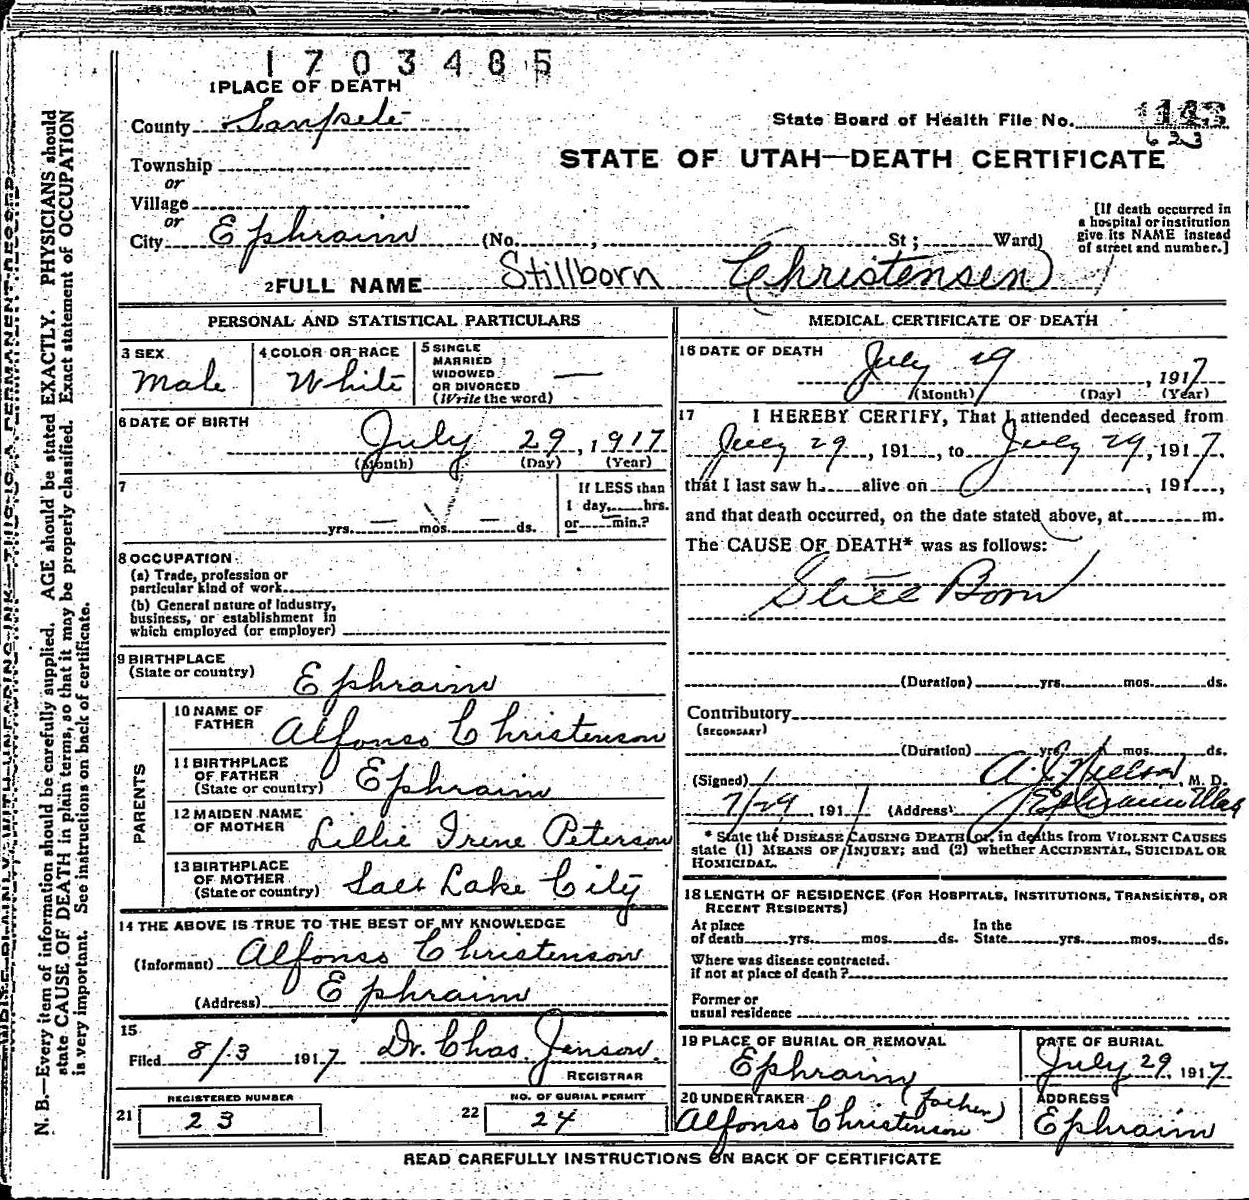 1703485
1 PLACE OF DEATH
County Sanpete
State Board of Health File No. 143
623
Township
or
Village
or
City Ephraim
STATE OF UTAH—DEATH CERTIFICATE
(No. , St ; Ward)
[If death occurred in
a hospital or institution
give its NAME instead
of street and number.]
2 FULL NAME Stillborn Christensen
PERSONAL AND STATISTICAL PARTICULARS
3 SEX
Male
4 COLOR OR RACE
White
5 SINGLE
MARRIED
WIDOWED
OR DIVORCED
(Write the word) —
6 DATE OF BIRTH
July 29, 1917
(Month) (Day) (Year)
7
yrs. — mos. — ds.
If LESS than
1 day, hrs.
or min.?
8 OCCUPATION
(a) Trade, profession or
particular kind of work
(b) General nature of Industry,
business, or establishment in
which employed (or employer)
9 BIRTHPLACE
(State or country) Ephraim
PARENTS
10 NAME OF
FATHER Alfonso Christenson
11 BIRTHPLACE
OF FATHER
(State or country) Ephraim
12 MAIDEN NAME
OF MOTHER Lillie Irene Peterson
13 BIRTHPLACE
OF MOTHER
(State or country) Salt Lake City
14 THE ABOVE IS TRUE TO THE BEST OF MY KNOWLEDGE
(Informant) Alfonso Christenson
(Address) Ephraim
15
Filed 8/3 1917 Dr. Chas. Jenson.
REGISTRAR
21 REGISTERED NUMBER
23
22 NO. OF BURIAL PERMIT
24
MEDICAL CERTIFICATE OF DEATH
16 DATE OF DEATH
July 29, 1917
(Month) (Day) (Year)
17 I HEREBY CERTIFY, That I attended deceased from
July 29, 191 , to July 29, 1917
that I last saw h alive on , 191 ,
and that death occurred, on the date stated above, at m.
The CAUSE OF DEATH* was as follows:
Still Born
(Duration) yrs. mos. ds.
Contributory
(SECONDARY)
(Duration) yrs. mos. ds.
(Signed) Nielson, M. D.
7/29, 191 (Address) Ephraim Utah
* State the DISEASE CAUSING DEATH or, in deaths from VIOLENT CAUSES
state (1) MEANS OF INJURY; and (2) whether ACCIDENTAL, SUICIDAL OR
HOMICIDAL.
18 LENGTH OF RESIDENCE (FOR HOSPITALS, INSTITUTIONS, TRANSIENTS, OR
RECENT RESIDENTS)
At place
of death yrs. mos. ds.
In the
State yrs. mos. ds.
Where was disease contracted.
if not at place of death?
Former or
usual residence
19 PLACE OF BURIAL OR REMOVAL
Ephraim
DATE OF BURIAL
July 29, 1917
20 UNDERTAKER (father)
Alfonso Christenson
ADDRESS
Ephraim
READ CAREFULLY INSTRUCTIONS ON BACK OF CERTIFICATE
WRITE PLAINLY WITH UNFADING INK—THIS IS A PERMANENT RECORD
N. B.—Every item of information should be carefully supplied. AGE should be stated EXACTLY. PHYSICIANS should
state CAUSE OF DEATH in plain terms, so that it may be properly classified. Exact statement of OCCUPATION
is very important. See instructions on back of certificate.